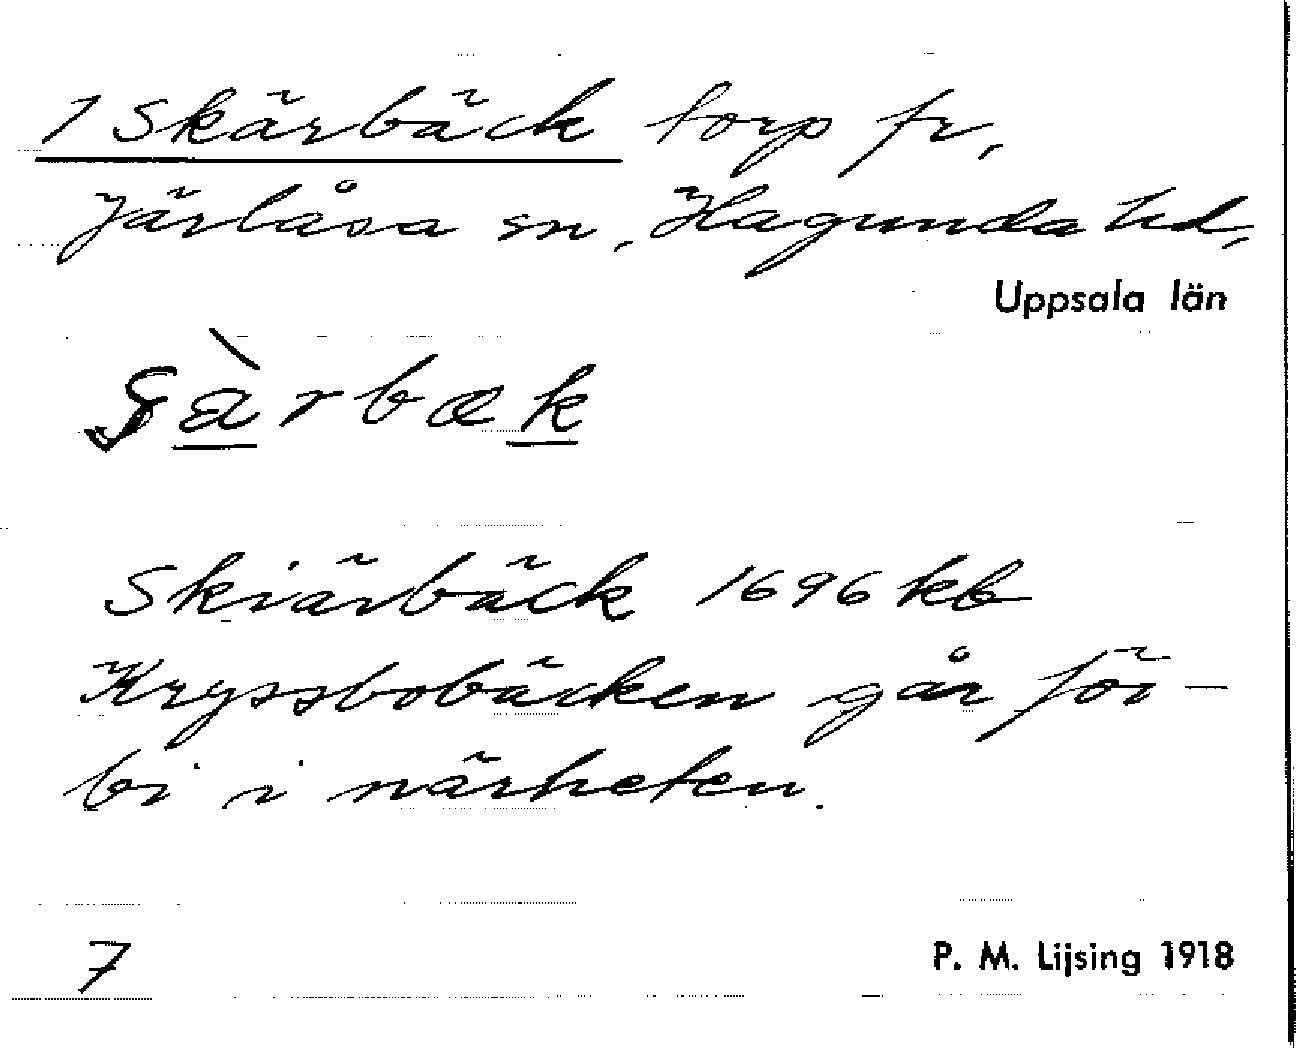 1 Skärbäck torp fr,
Järlåsa sn, Hagunda hd,
Uppsala län
ʂàrbæk
Skiärbäck 1696 kb
Kryssbobäcken går för-
bi i närheten.
7
P. M. Lijsing 1918